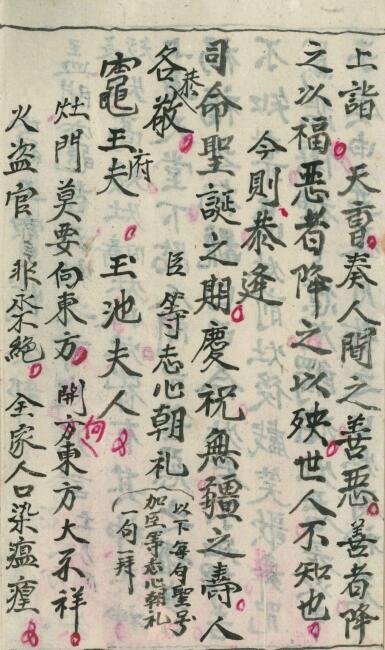 上詣由天曹奏人間之善惡善者降
之以福惡者降之以殃世人不知也
今則恭逢
司命聖誕之期慶祝無疆之壽人
各恭敬 臣等志心朝礼（以下每句聖号
加臣等志心朝礼
一句一拜）
竈王府夫 玉池夫人
灶門莫要向東方開向方東方大不祥
火盜官非永絕 全家人口染瘟瘽